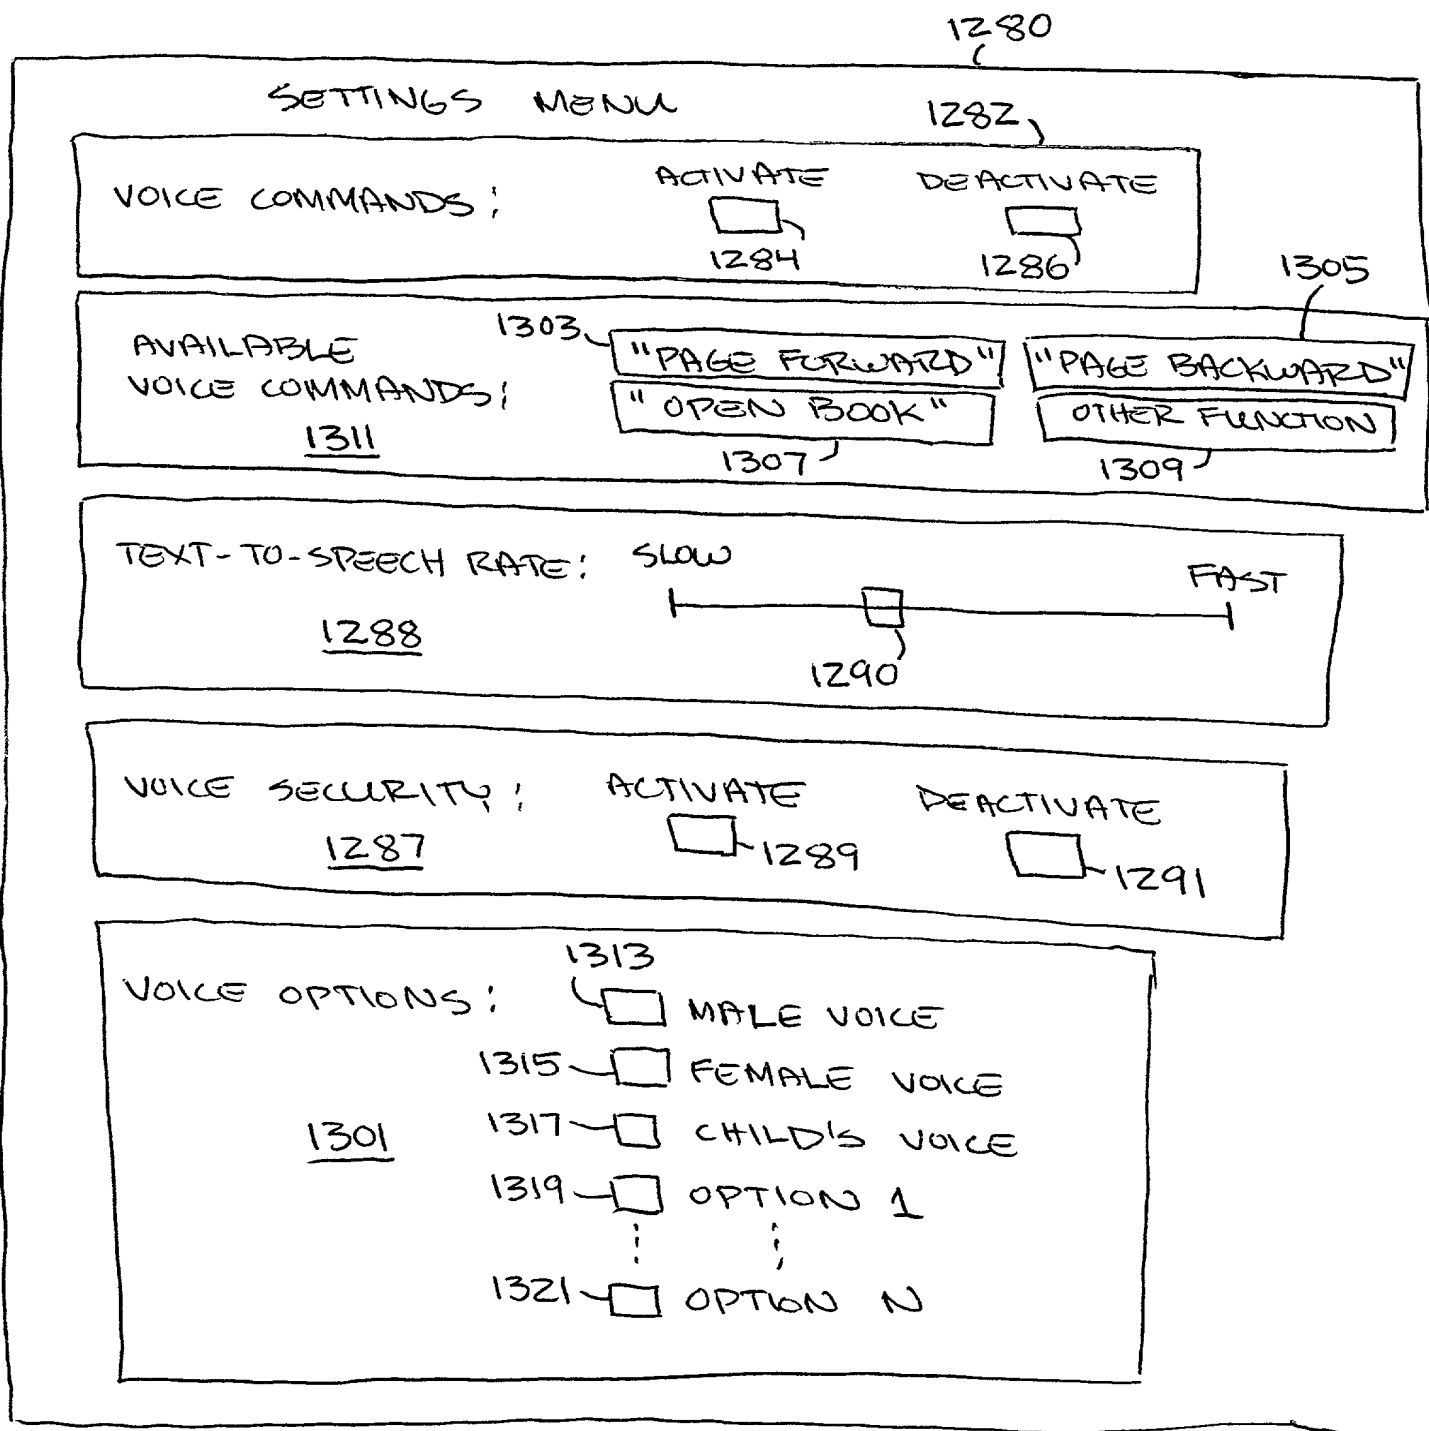 1280
SETTINGS MENU
1282
VOICE COMMANDS: ACTIVATE DEACTIVATE
1284 1286
1305
AVAILABLE VOICE COMMANDS: 1303 "PAGE FORWARD" "PAGE BACKWARD"
"OPEN BOOK" OTHER FUNCTION
1311 1307 1309
TEXT-TO-SPEECH RATE: SLOW FAST
1288 1290
VOICE SECURITY: ACTIVATE DEACTIVATE
1287 1289 1291
1313
VOICE OPTIONS: MALE VOICE
1315 FEMALE VOICE
1301 1317 CHILD'S VOICE
1319 OPTION 1
1321 OPTION N